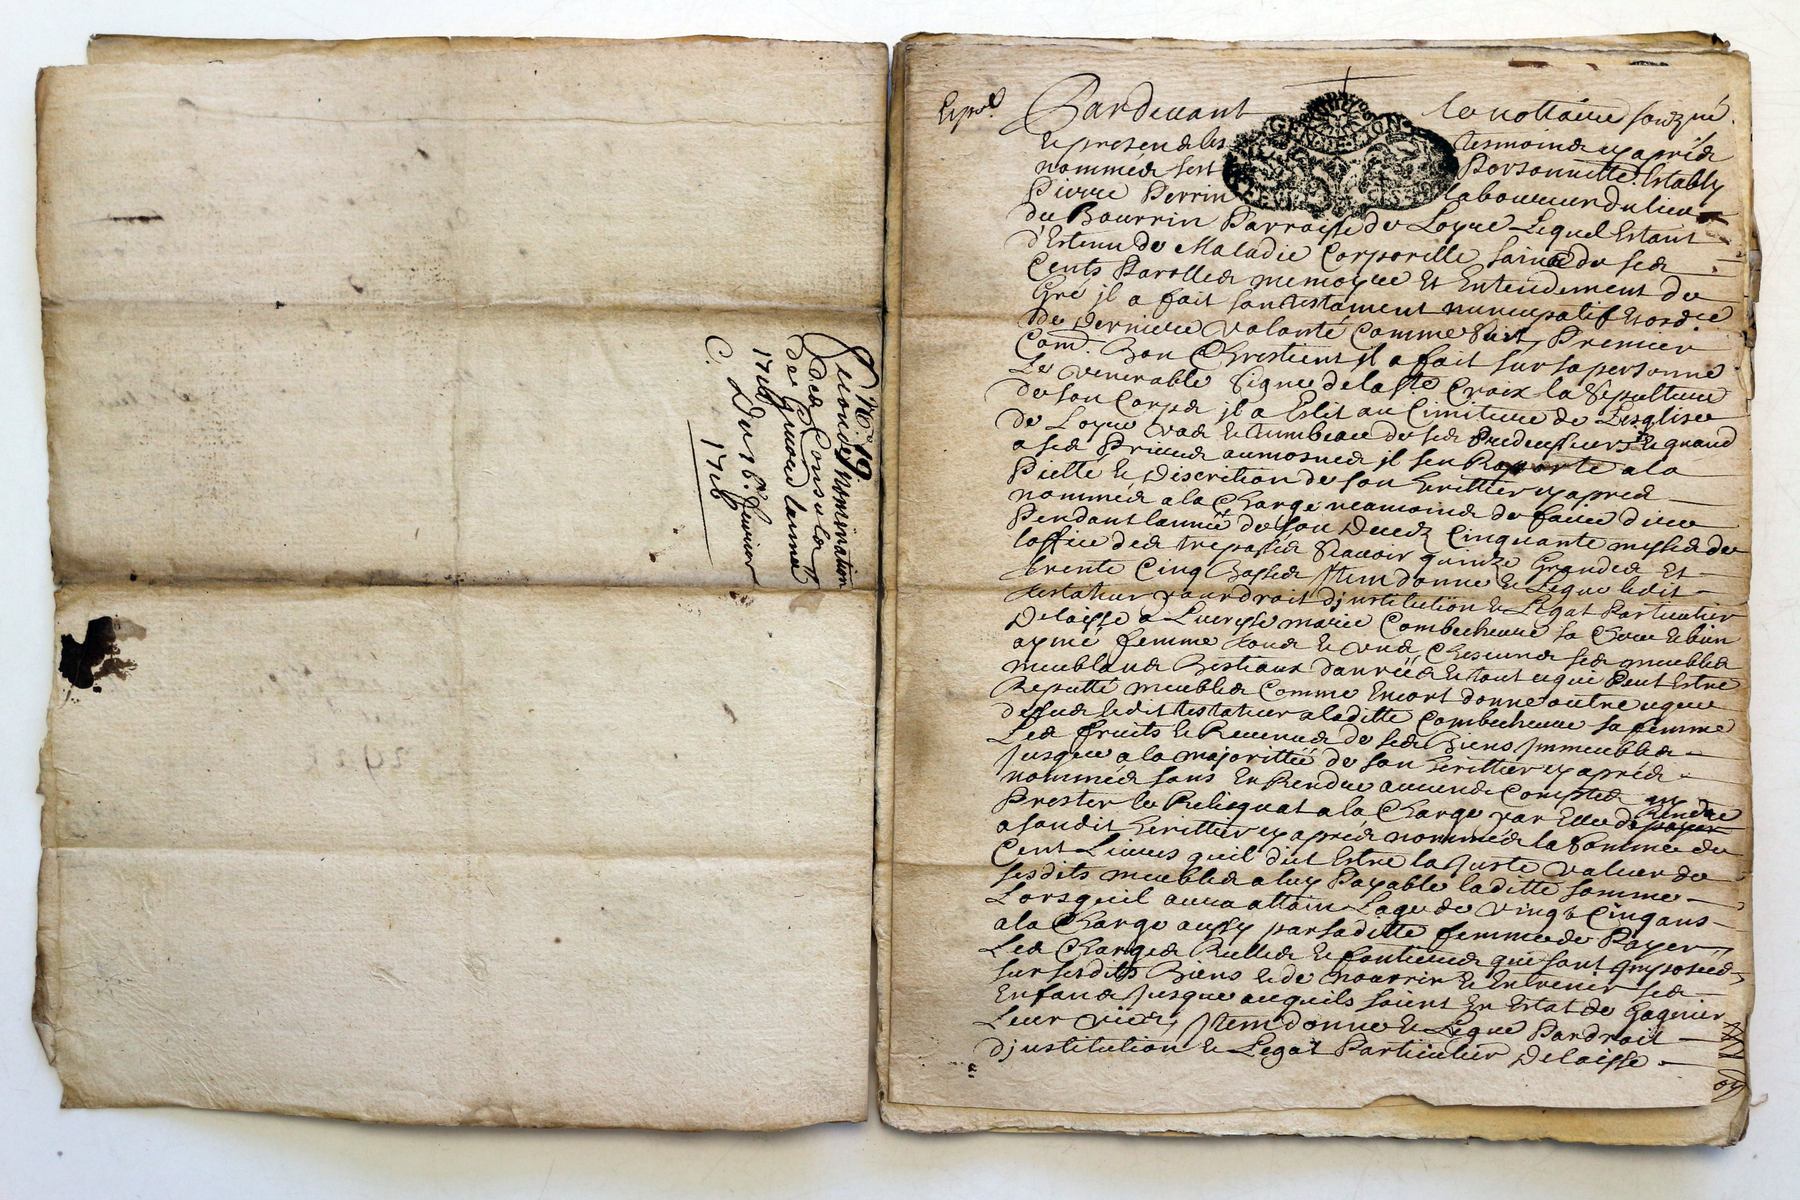 No. 19
nomination
des Consuls
de Gueord lannée
1716
C. Du 16e. feurier
1716
Pardeuant le nottaire souzné.
Et presend les tesmoinds yapréds
nomméds fert Personnelle. Estably
Pierre Perrin laboureur du lieu
du Bourrin Parroisse de Loyre Lequel Estant
d'Estenu de Maladie Corporelle sain de seds
Cents Parolleds memoyre Et Entendement de
Gré jl a fait son testament nuncupatif et ordre
de derniere volonté Comme Suit, Premier
Com. Bon Chrestient jl a fait sur sa personne
Le venerable Signe de la Ste Croix la Sepulture
de son Corps jl a Eslit au Cimitiere de Lesglise
de Loyre vad le tumbeau de seds Predecesseurs Et quand
a seds Prieres aumosneds jl sen Raporte a la
Pietté Et Discrition de son heritier yapreds
nomméds a la Charge neamoinds de faire dire
Pendant lannée de son Deceds Cinquante messeds de
loffice deds trepasséds Scavoir quinze Grandeds Et
trente Cinq Basseds Jtem donne Et Legue ledit
testateur Par droit djnstitution Et Legat Particulier
Delaisse a marie Combecheure sa Chere Et bien
aymé femme touds Et vnds Chescunds seds meubleds
meublands Bestiaux danréeds Et tout ce que Peut Estre
Reputté meubleds Comme Encort donne outre ce que
dessuds ledit testateur a laditte Combecheure sa femme
Leds fruits Et Revenuds de seds Biens Jmmeubleds
Jusque a la majorittée de son heritier yapréds
nomméds sans En Rendre aucunds Compteds ny
Prester le Reliquat a la Charge par Elle de Rendre
a sondit heritier yapréds nomméds la Somme de
Cent Liures quil dit Estre la Juste valeur de
sesdits meubleds a luy Payable laditte somme
Lorsquil aura attain Lage de vingt Cinq ans
a la Charge aussy par saditte femme de Payer
Leds Chargeds Reelleds Et fontiereds qui sont jmposéeds
sur sesdits Biens Et de nourrir Et Entrenir seds
Enfands Jusque aquils soient En Estat de Gagnier
Leur vieds, Jtem donne Et Legue Pardroit
djnstitution Et Legat Particulier Delaisse